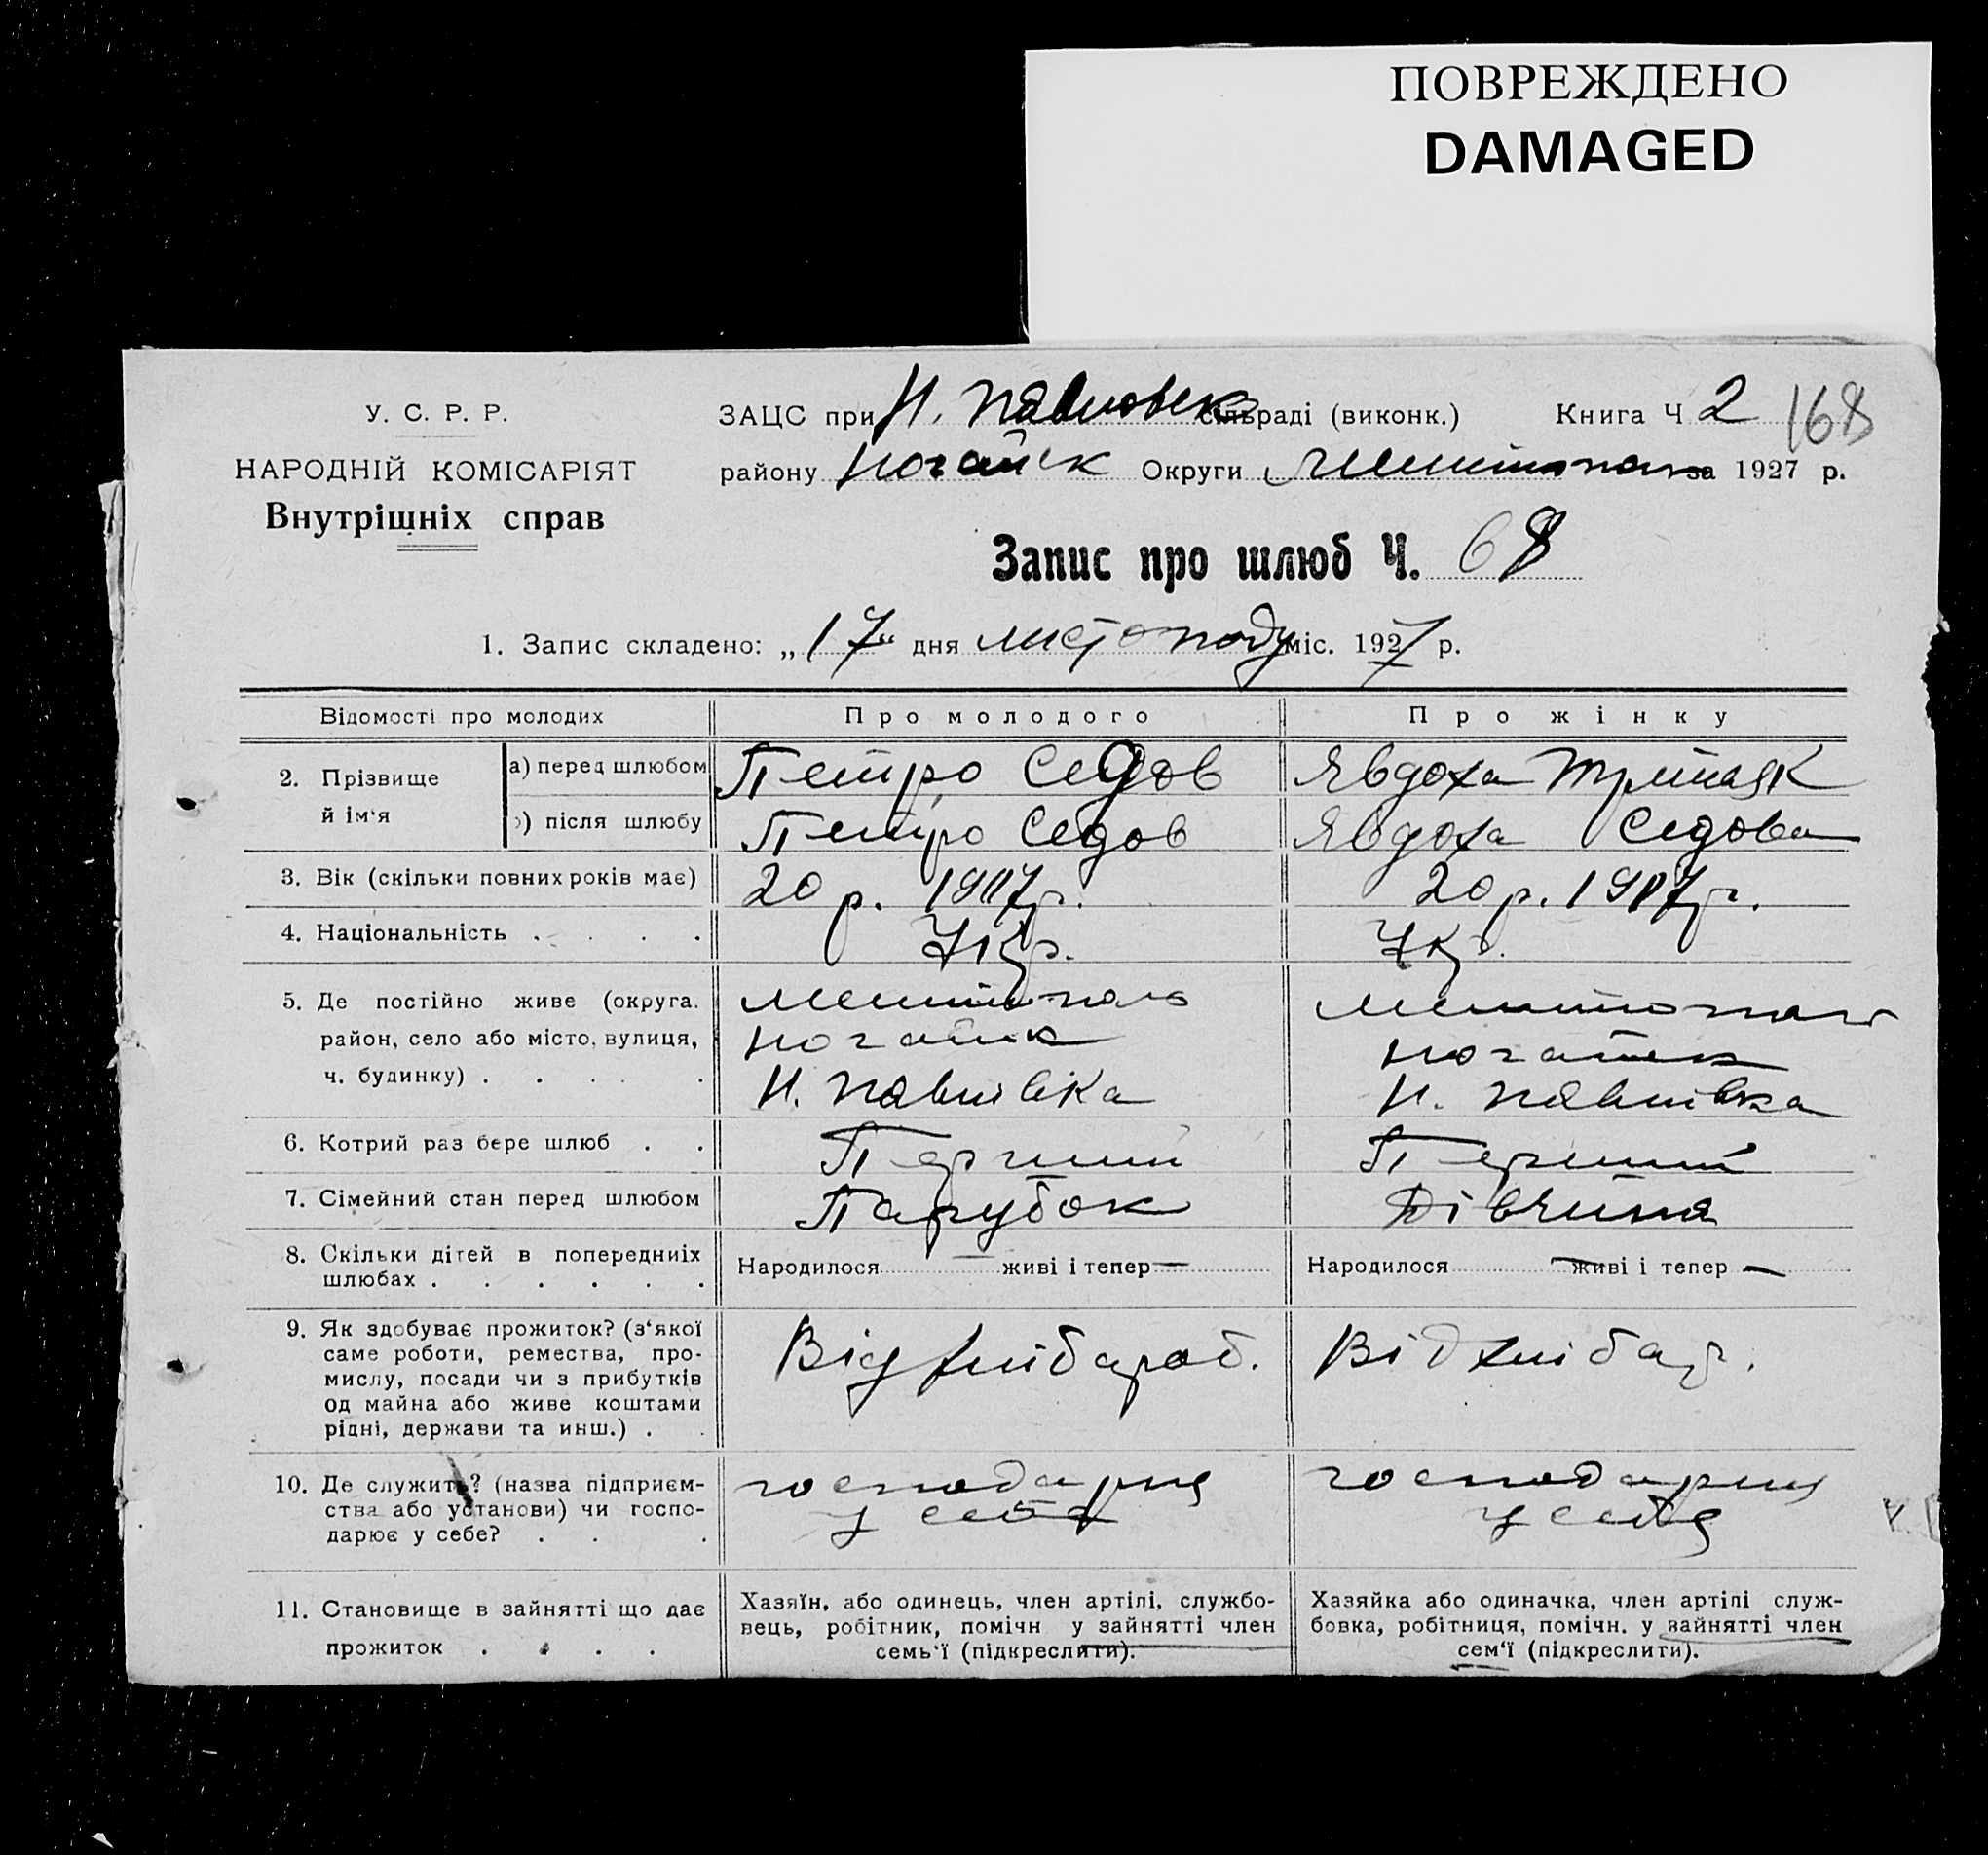 ПОВРЕЖДЕНО
DAMAGED
У. С. Р. Р.
НАРОДНІЙ КОМІСАРІЯТ
Внутрішніх справ
ЗАЦС при Н. Павловск сільраді (виконк.) Книга Ч 2 168
району Ногайск Округи Мелитополь за 1927 р.
Запис про шлюб Ч. 68
1. Запис складено: „17“ дня листопаду міс. 1927 р.
Відомості про молодих Про молодого Про жінку
2. Прізвище й ім'я
а) перед шлюбом Петро Седов Явдоха
) після шлюбу Петро Седов Явдоха Седова
3. Вік (скільки повних років має) 20 р. 1907 р. 20 р. 1907 р.
4. Національність . . . . Укр. Укр.
5. Де постійно живе (округа. Мелитополь Мелитополь
район, село або місто, вулиця, Ногайск Ногайск
ч. будинку) . . . . Н. Павлівка Н. Павлівка
6. Котрий раз бере шлюб . . Перший Перший
7. Сімейний стан перед шлюбом Парубок Дівчина
8. Скільки дітей в попередниіх Народилося — живі і тепер — Народилося — живі і тепер —
шлюбах . . . . . .
9. Як здобуває прожиток? (з'якої Від хлібароб. Від хлібар.
саме роботи, ремества, про-
мислу, посади чи з прибутків
од майна або живе коштами
рідні, держави та инш.) . .
10. Де служить? (назва підприєм- господарює господарює
ства або установи) чи госпо- у себе у себе
дарює у себе? . . .
11. Становище в зайнятті що дає
прожиток . . . .
Хазяїн, або одинець, член артілі, службо-
вець, робітник, помічн у зайнятті член
семь'ї (підкреслити).
Хазяйка або одиначка, член артілі служ-
бовка, робітниця, помічн. у зайнятті член
сем'ї (підкреслити).